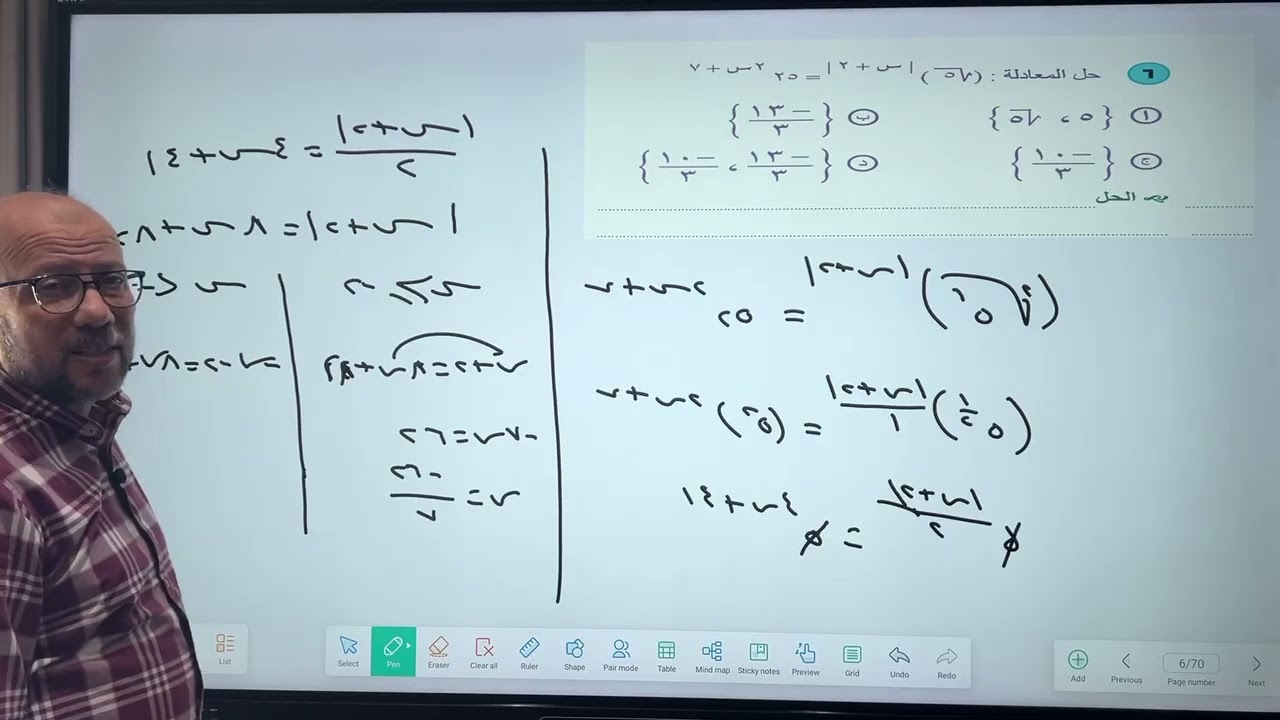 ٦ حل المعادلة : (√٥)^|س + ٢| = ٢٥^٢س + ٧
أ { ٥ ، √٥ }
ب { -١٣/٣ }
ج { -١٠/٣ }
د { -١٣/٣ ، -١٠/٣ }
الحل
(√٥)^|س+٢| = ٢٥^٢س+٧
(٥^١/٢)^|س+٢|/١ = (٥^٢)^٢س+٧
٥^|س+٢|/٢ = ٥^٤س+١٤
|س+٢|/٢ = ٤س+١٤
|س+٢| = ٨س+٢٨
س ≥ -٢
س+٢=٨س+٢٨
-٧س=٢٦
س = -٢٦/٧
س <
-س-٢=٨س+
List
Select
Pen
Eraser
Clear all
Ruler
Shape
Pair mode
Table
Mind map
Sticky notes
Preview
Grid
Undo
Redo
Add
Previous
6/70
Page number
Next